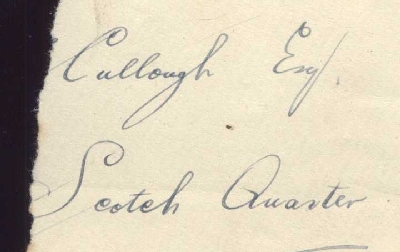 Cullough Esq
Scotch Quarter